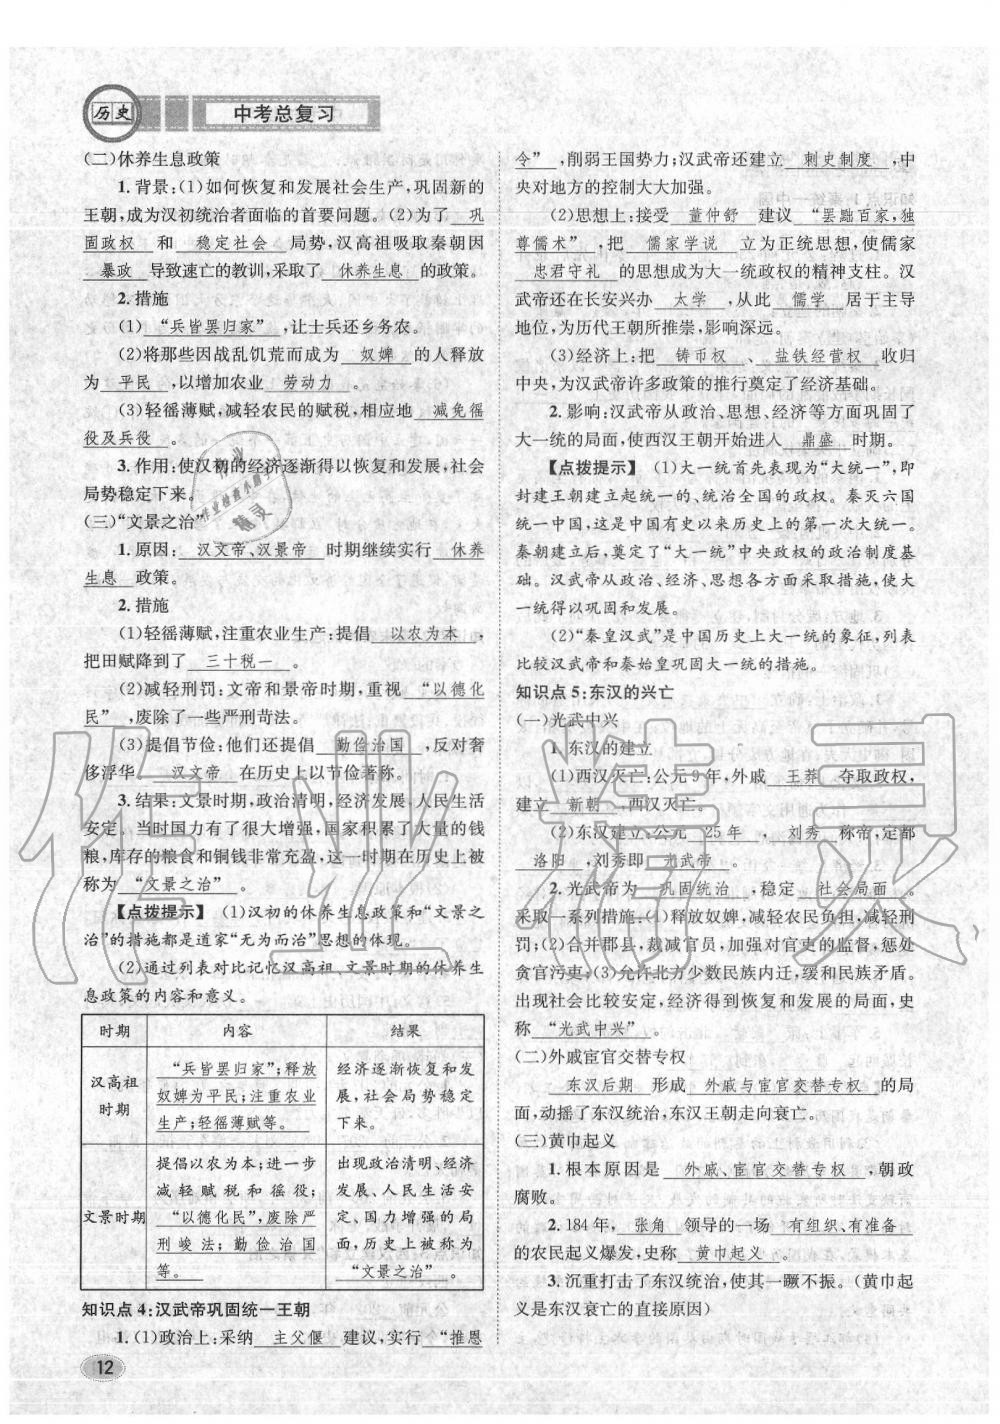 历史
中考总复习
(二)休养生息政策
1. 背景:(1)如何恢复和发展社会生产,巩固新的
王朝,成为汉初统治者面临的首要问题。(2)为了 巩
固政权 和 稳定社会 局势,汉高祖吸取秦朝因
暴政 导致速亡的教训,采取了 休养生息 的政策。
2. 措施
(1) “兵皆罢归家” ,让士兵还乡务农。
(2)将那些因战乱饥荒而成为 奴婢 的人释放
为 平民 ,以增加农业 劳动力 。
(3)轻徭薄赋,减轻农民的赋税,相应地 减免徭
役及兵役 。
3. 作用:使汉初的经济逐渐得以恢复和发展,社会
局势稳定下来。
(三)“文景之治”
1. 原因: 汉文帝、汉景帝 时期继续实行 休养
生息 政策。
2. 措施
(1)轻徭薄赋,注重农业生产:提倡 以农为本 ,
把田赋降到了 三十税一 。
(2)减轻刑罚:文帝和景帝时期,重视 “以德化
民” ,废除了一些严刑苛法。
(3)提倡节俭:他们还提倡 勤俭治国 ,反对奢
侈浮华。 汉文帝 在历史上以节俭著称。
3. 结果:文景时期,政治清明,经济发展,人民生活
安定。当时国力有了很大增强,国家积累了大量的钱
粮,库存的粮食和铜钱非常充盈,这一时期在历史上被
称为 “文景之治” 。
【点拨提示】 (1)汉初的休养生息政策和“文景之
治”的措施都是道家“无为而治”思想的体现。
(2)通过列表对比记忆汉高祖、文景时期的休养生
息政策的内容和意义。
时期 内容 结果
汉高祖
时期
“兵皆罢归家”;释放
奴婢为平民;注重农业
生产;轻徭薄赋等。
经济逐渐恢复和发
展,社会局势稳定
下来。
文景时期
提倡以农为本;进一步
减轻赋税和徭役;
“以德化民”,废除严
刑峻法;勤俭治国
等。
出现政治清明、经济
发展、人民生活安
定、国力增强的局
面,历史上被称为
“文景之治”
知识点 4:汉武帝巩固统一王朝
1. (1)政治上:采纳 主父偃 建议,实行 “推恩
令” ,削弱王国势力;汉武帝还建立 刺史制度 ,中
央对地方的控制大大加强。
(2)思想上:接受 董仲舒 建议 “罢黜百家,独
尊儒术” ,把 儒家学说 立为正统思想,使儒家
忠君守礼 的思想成为大一统政权的精神支柱。汉
武帝还在长安兴办 太学 ,从此 儒学 居于主导
地位,为历代王朝所推崇,影响深远。
(3)经济上:把 铸币权 、 盐铁经营权 收归
中央,为汉武帝许多政策的推行奠定了经济基础。
2. 影响:汉武帝从政治、思想、经济等方面巩固了
大一统的局面,使西汉王朝开始进入 鼎盛 时期。
【点拨提示】 (1)大一统首先表现为“大统一”,即
封建王朝建立起统一的、统治全国的政权。秦灭六国
统一中国,这是中国有史以来历史上的第一次大统一。
秦朝建立后,奠定了“大一统”中央政权的政治制度基
础。汉武帝从政治、经济、思想各方面采取措施,使大
一统得以巩固和发展。
(2)“秦皇汉武”是中国历史上大一统的象征,列表
比较汉武帝和秦始皇巩固大一统的措施。
知识点 5:东汉的兴亡
(一)光武中兴
1. 东汉的建立
(1)西汉灭亡:公元 9 年,外戚 王莽 夺取政权,
建立 新朝 ,西汉灭亡。
(2)东汉建立:公元 25 年 , 刘秀 称帝,定都
洛阳 ,刘秀即 光武帝 。
2. 光武帝为 巩固统治 ,稳定 社会局面 ,
采取一系列措施:(1)释放奴婢,减轻农民负担,减轻刑
罚;(2)合并郡县,裁减官员,加强对官吏的监督,惩处
贪官污吏;(3)允许北方少数民族内迁,缓和民族矛盾。
出现社会比较安定,经济得到恢复和发展的局面,史
称 “光武中兴” 。
(二)外戚宦官交替专权
东汉后期 形成 外戚与宦官交替专权 的局
面,动摇了东汉统治,东汉王朝走向衰亡。
(三)黄巾起义
1. 根本原因是 外戚、宦官交替专权 ,朝政
腐败。
2. 184 年, 张角 领导的一场 有组织、有准备
的农民起义爆发,史称 黄巾起义 。
3. 沉重打击了东汉统治,使其一蹶不振。(黄巾起
义是东汉衰亡的直接原因)
12
作业精灵